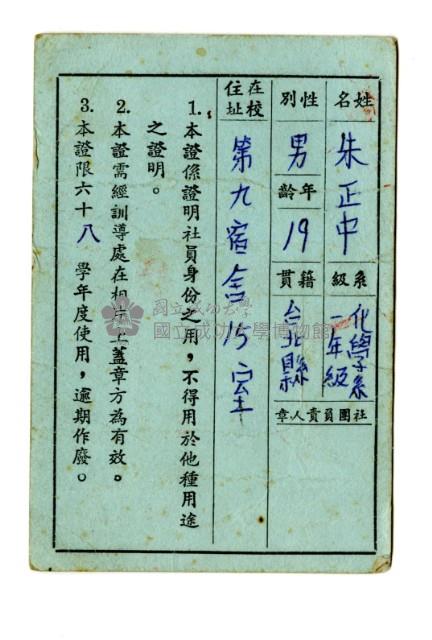 姓名
朱正中
系級
化學系
一年級
社團負責人章
性別
男
年齡
19
籍貫
台北縣
在校住址
第九宿舍15室
1.本證係證明社員身份之用，不得用於他種用途
之證明。
2.本證需經訓導處在相片上蓋章方為有效。
3.本證限六十八學年度使用，逾期作廢。
國立成功大學
國立成功大學博物館